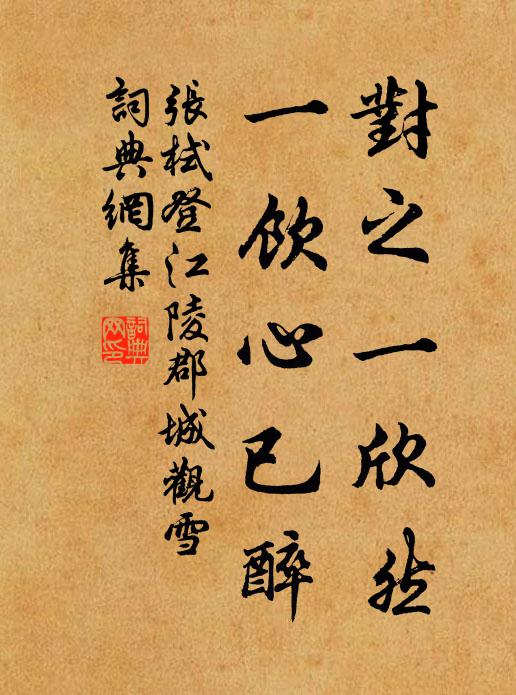 對之一欣然
一飲心已醉
張栻登江陵郡城觀雪
詞典網集
詞典網印